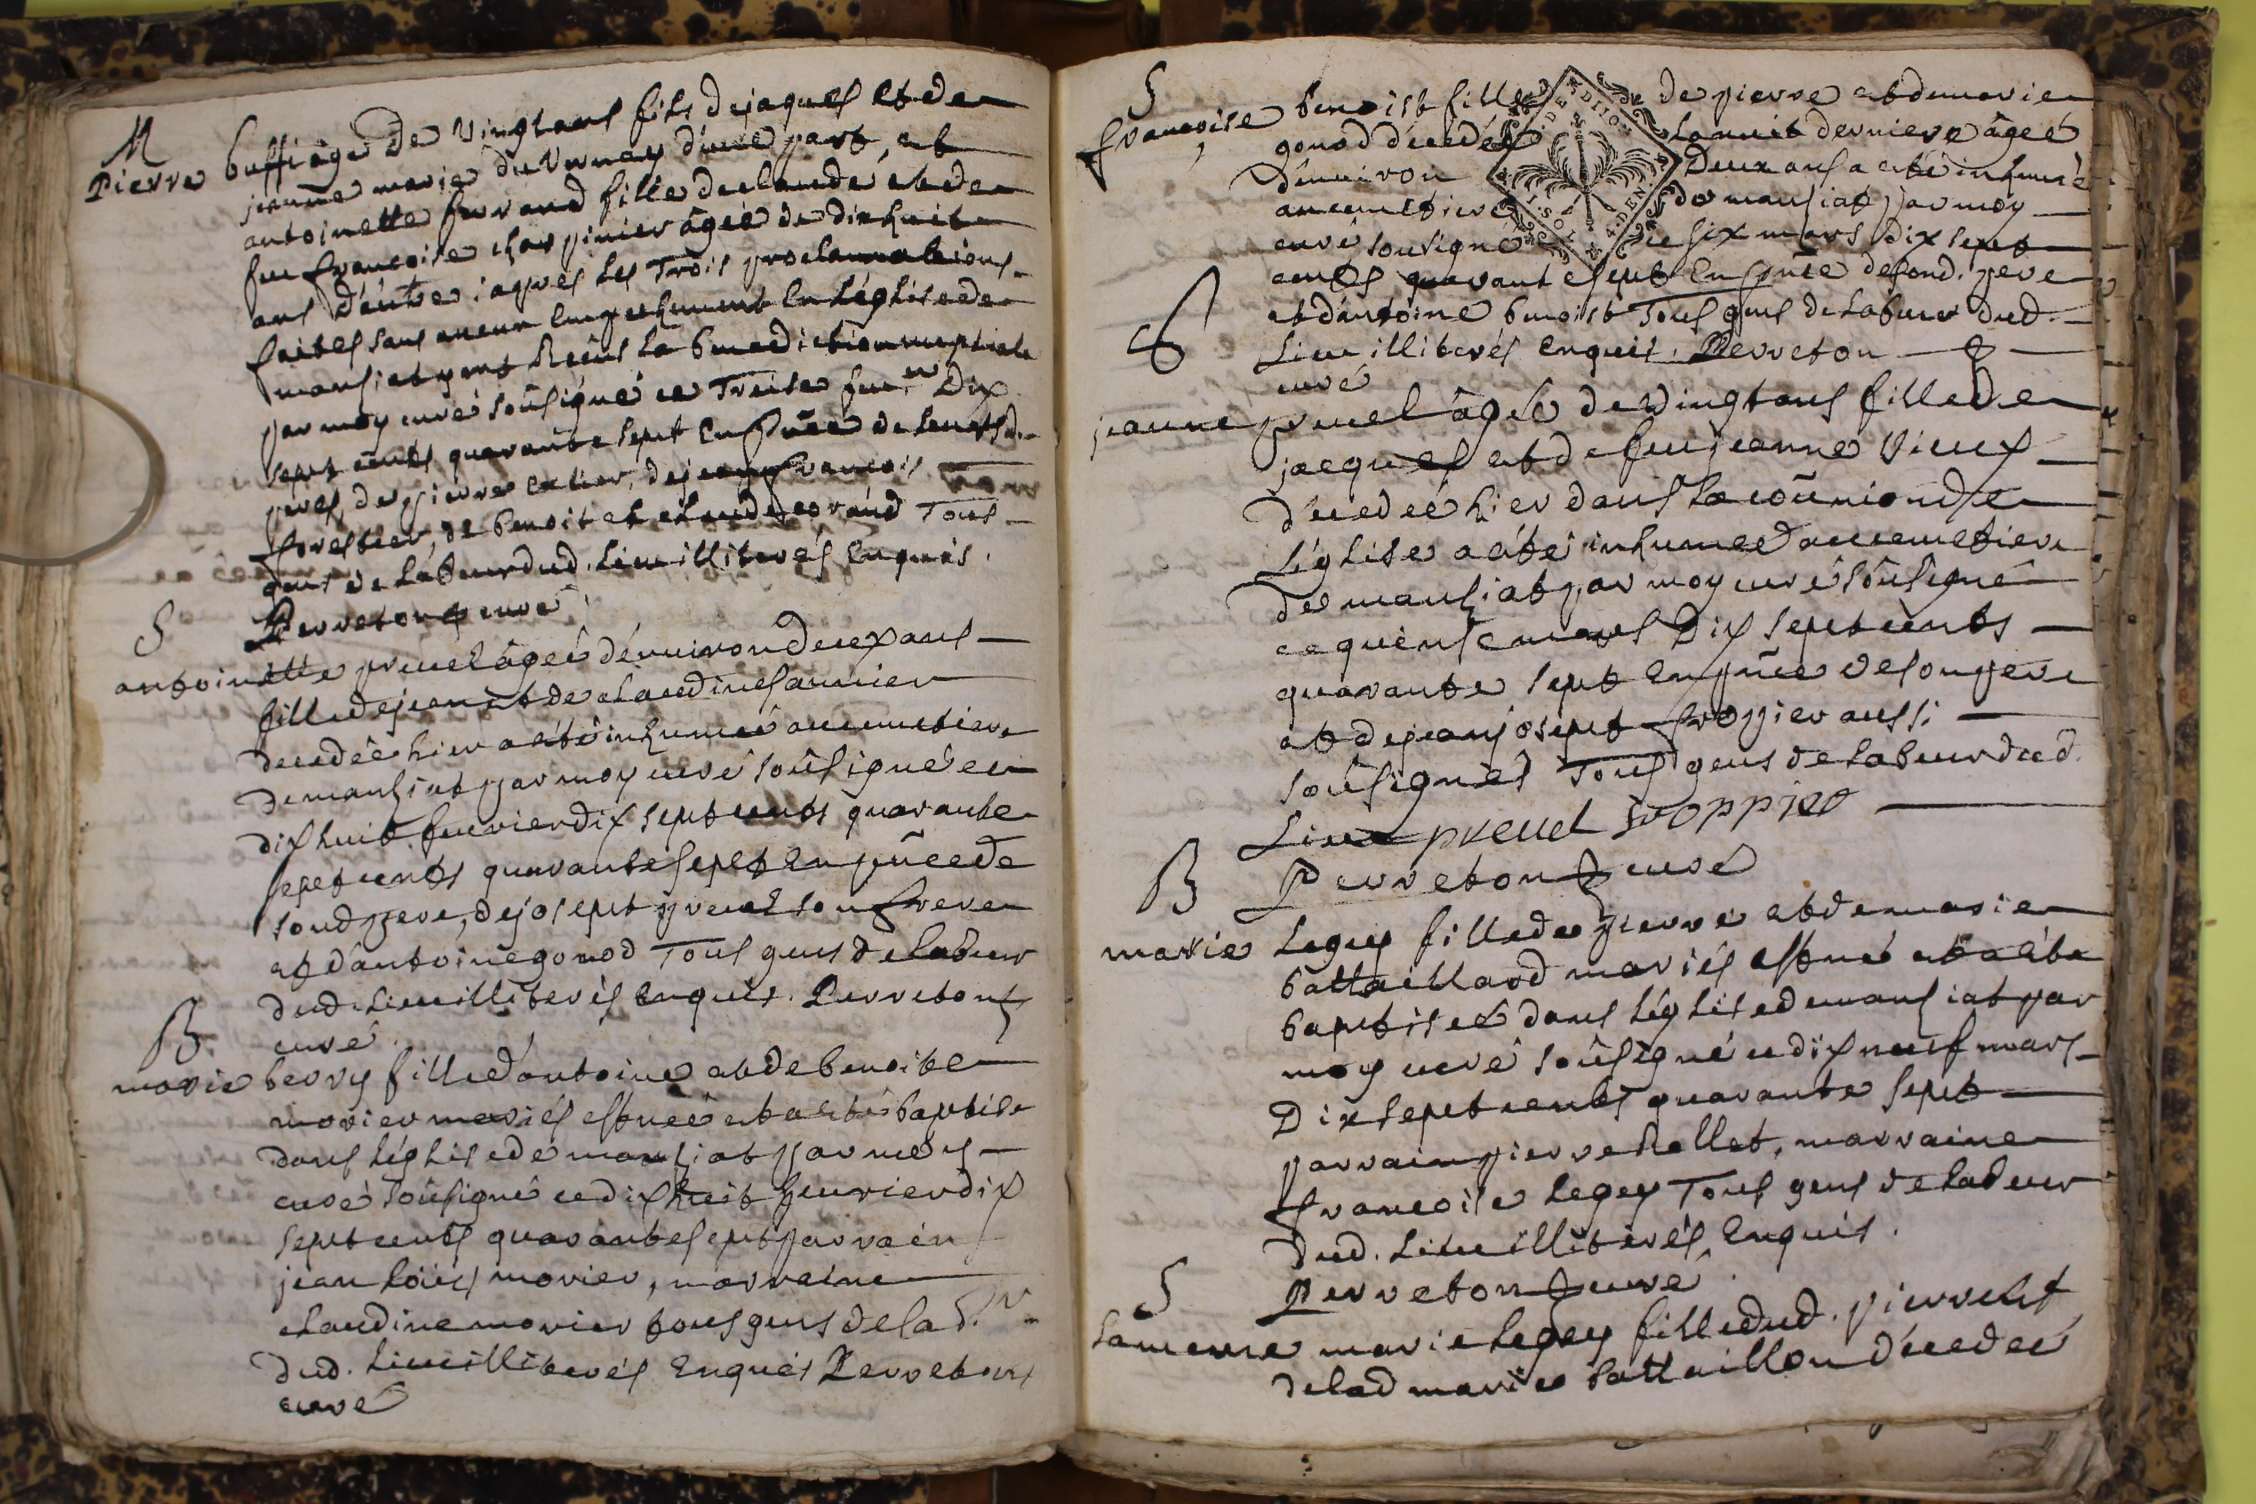 M
Pierre buffiàge de vingtans fils dejaques et de
jeanne marie du vernay d'une part, et
antoinette ferrand fille declaude et de
feu francoise charpinier âgée de dixhuit
ans d'autre; apres les trois proclamations
faites sans aucun empechement en l'église de
mansiat y ont Receus la benediction nuptiale
par moy curé soûsigné ce treise feu.er dix
sept cents quarante sept en pñce de leurs d.
peres, de pierre de jean francois
forestier, de benoit et claude ferrand tous
gens de labeur dud. lieu illiterés enquis.
Perreton curé
S
antoinette preuel âgée d'enuiron deux ans
fille de jean et de claudine saunier
decedée hier a été inhumée au cemetiere
de mansiat par moy curé soûsigné ce
dix huit feurier dix sept cents quarante
sept en pñce de
sond pere, de josept preuel son frere
et d'antoine gonod tous gens de labeur
dud. lieu illiterés enquis. Perreton
curé
B
marie berry fille d'antoine et de benoite
morier mariés est née et a été baptisée
dans l'églisede mansiat par moy
curé soûsigné ce dix huit feurier dix
sept cents quarante sept parrain
jean loüis morier, marraine
claudine morier tous gens de lab.r
dud. lieu illiterés enquis Perreton
curé
S
francoise benoist fille de pierre et de marie
gonod décedée la nuit derniere âgée
d'enuiron deux ans a été inhumée
au cemetiere de mansiat par moy
curé soûsigné ce six mars dix sept
cents quarante sept en pñce de sond. pere
et d'antoine benoist tous gens de labeur dud.
lieu illiterés enquis. Perreton
curé
S
jeanne preuel âgée de vingt ans fille de
jacques et de feu jeanne vieux
décedée hier dans la coũnion de
l'église a été inhumée au cemetiere
de mansiat par moy curé soûsigné
ce quinse mars dix sept cents
quarante sept en pñce de son pere
et de jean josept froppier aussi
soûsignés tous gens de labeur dud.
lieu preuel froppier
Perreton curé
B
marie legey fille de pierre et de marie
battaillard mariés est née et a été
baptisée dans l'église de mansiat par
moy curé soûsigné ce dix neuf mars
dix sept cents quarante sept
parrain pierre Rollet, marraine
francoise legey tous gens de labeur
dud. lieu illiterés enquis.
Perreton curé
S
la meme marie legey fille dud. pierre et
de lad marie battaillon décedée
DEN